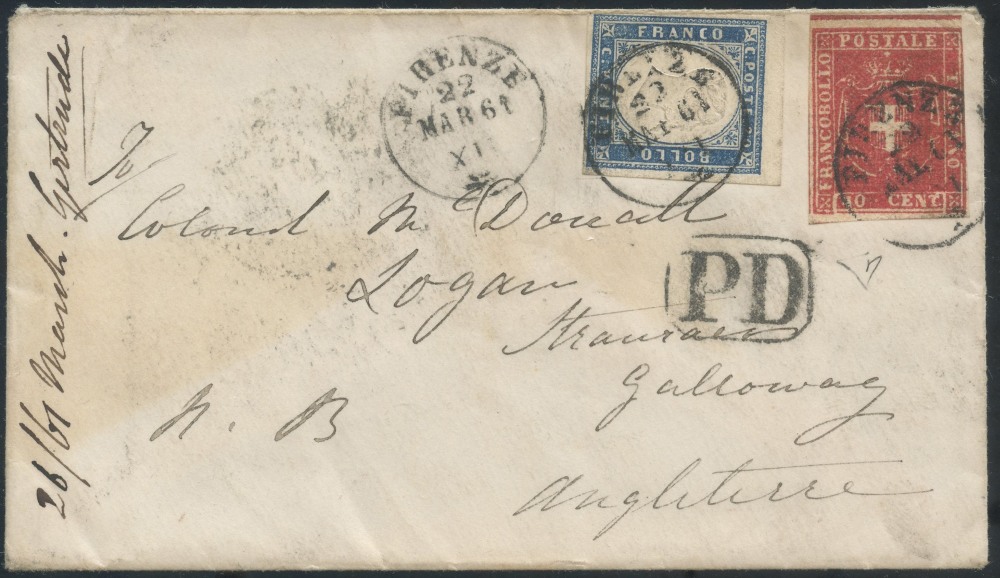 FIRENZE
22
MAR 61
XI
FRANCO
C. POSTE
BOLLO
POSTALE
FRANCOBOLLO
CENT
PD
To
Colonel Mc Douall
Logan
Stranraer
Galloway
N. B
Angleterre
26/61 March. Gertrude